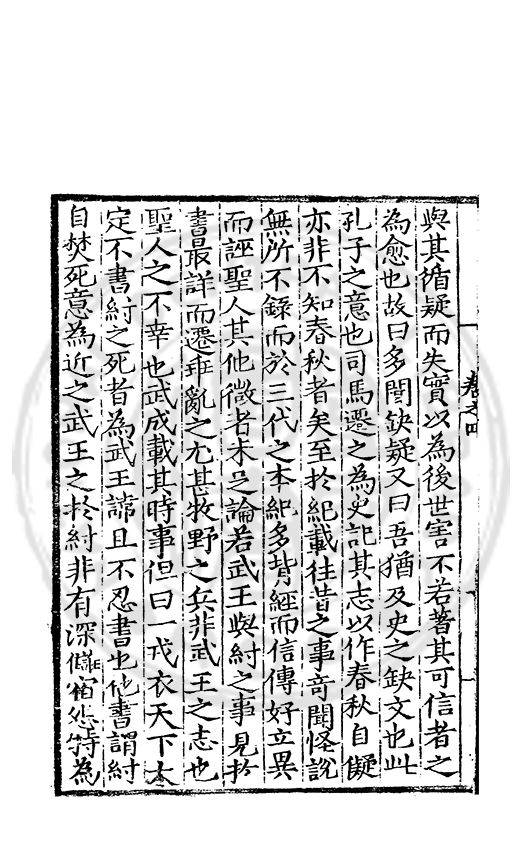 卷之四
與其循疑而失實以為後世害不若著其可信者之
為愈也故曰多聞缺疑又曰吾猶及史之缺文也此
孔子之意也司馬遷之為史記其志以作春秋自儗
亦非不知春秋者矣至於紀載往昔之事奇聞怪說
無所不錄而於三代之本紀多背經而信傳好立異
而誣聖人其他微者未足論若武王與紂之事見於
書最詳而遷乖亂之尤甚牧野之兵非武王之志也
聖人之不幸也武成載其時事但曰一戎衣天下大
定不書紂之死者為武王諱且不忍書也他書謂紂
自焚死意為近之武王之於紂非有深讎宿怨特為